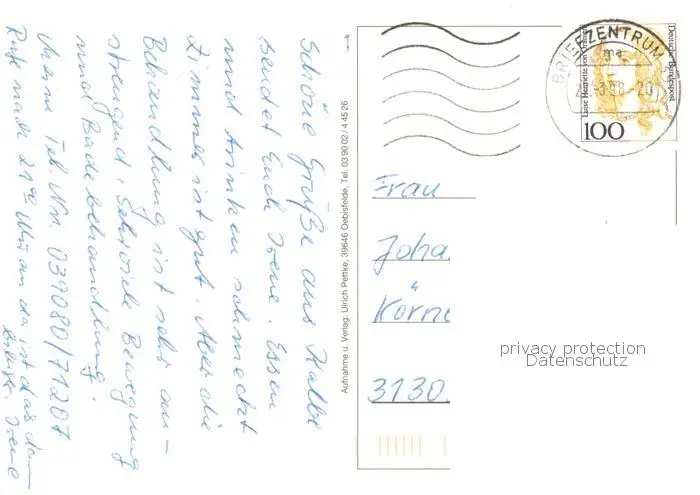 Schöne Grüße aus Kalbe
sendet Euch Irene. Essen
und trinken schmeckt
Zimmer ist gut. Aber die
Behandlung ist sehr an-
strengend, Sehr viele Bewegung
und Badebehandlung.
Meine Tel. Nr. 039080/71207
Ruft nach 21°° Uhr an da ist das dann
Irene
Aufnahme u. Verlag: Ulrich Pettke, 39646 Oebisfelde, Tel. 03 90 02 / 4 45 26
BRIEFZENTRUM
Deutsche Bundespost
Luise Henriette von Oranien
100
Frau
Joha
Körne
3130
privacy protection
Datenschutz